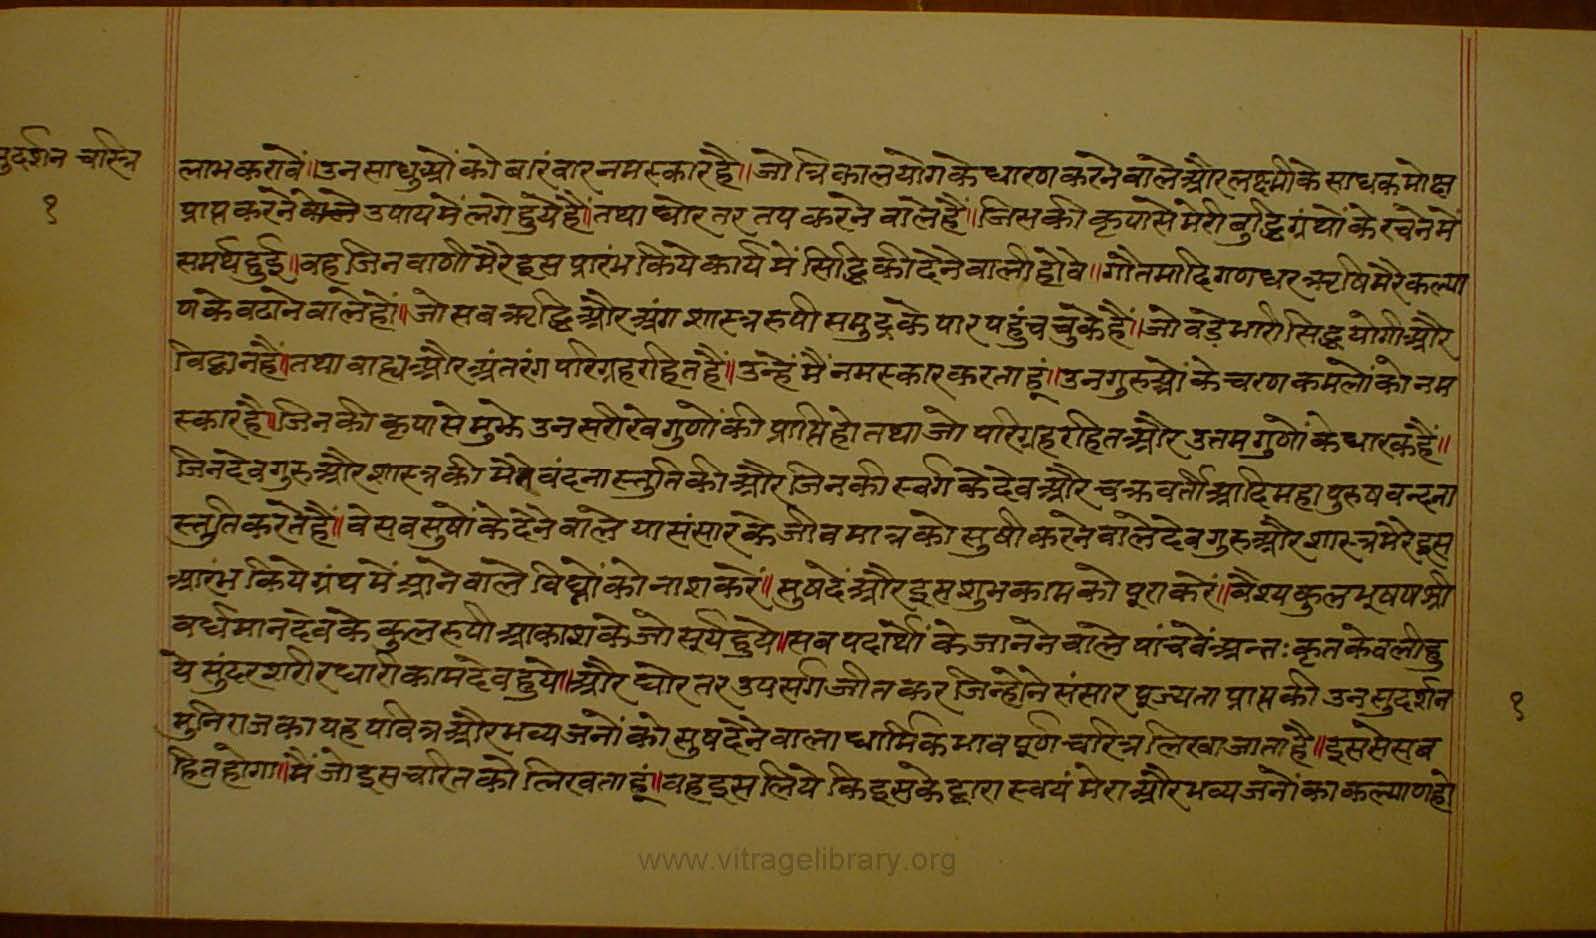 सुदर्शन चारित्र
१
लाभ करावें॥ उन साधुओं को बारंवार नमस्कार है॥ जो त्रिकाल योग के धारण करने वाले और लक्ष्मी के साधक मोक्ष
प्राप्त करने के उपाय में लगे हुये हैं॥ तथा घोर तर तप करने वाले हैं॥ जिसकी कृपा से मेरी बुद्धि ग्रंथों के रचने में
समर्थ हुई॥ वह जिनवाणी मेरे इस प्रारंभ किये कार्य में सिद्धि की देने वाली होवे॥ गौतमादि गणधर ऋषि मेरे कल्या
ण के वढाने वाले हों॥ जो सब ऋद्धि और अंग शास्त्र रुपी समुद्र के पार पहुंच चुके हैं॥ जो वडे़ भारी सिद्ध योगी और
विद्वान हैं॥ तथा वाह्य और अंतरंग परिग्रह रहित हैं॥ उन्हें मैं नमस्कार करता हूं॥ उन गुरुओं के चरण कमलों को नम
स्कार है॥ जिनकी कृपा से मुझे उन सरीखे गुणों की प्राप्ति हो तथा जो परिग्रह रहित और उत्तम गुणों के धारक हैं॥
जिनदेव गुरु और शास्त्र की मैने वंदना स्तुति की और जिनकी स्वर्ग के देव और चक्रवर्ती आदि महा पुरुष वन्दना
स्तुति करते हैं॥ वे सव सुषों के देने वाले या संसार के जीव मात्र को सुषी करने वाले देव गुरु और शास्त्र मेरे इस
प्रारंभ किये ग्रंथ में आने वाले विघ्नों को नाश करें॥ सुष दें और इस शुभ काम को पूरा करें॥ वैश्य कुल भूषण श्री
वर्धमान देव के कुल रुपी आकाश के जो सूर्य हुये॥ सब पदार्थों के जानने वाले पांचवें अन्तः कृत केवली हु
ये सुंदर शरीर धारी कामदेव हुये॥ और घोर तर उपसर्ग जीत कर जिन्होने संसार पूज्यता प्राप्त की उन सुदर्शन
मुनिराज का यह पवित्र और भव्य जनों को सुष देने वाला धार्मिक भाव पूर्ण चरित्र लिखा जाता है॥ इससे सब
हित होगा॥ मैं जो इस चरित को लिखता हूं॥ वह इस लिये कि इसके द्वारा स्वयं मेरा और भव्य जनों का कल्याण हो
१
www.vitragelibrary.org